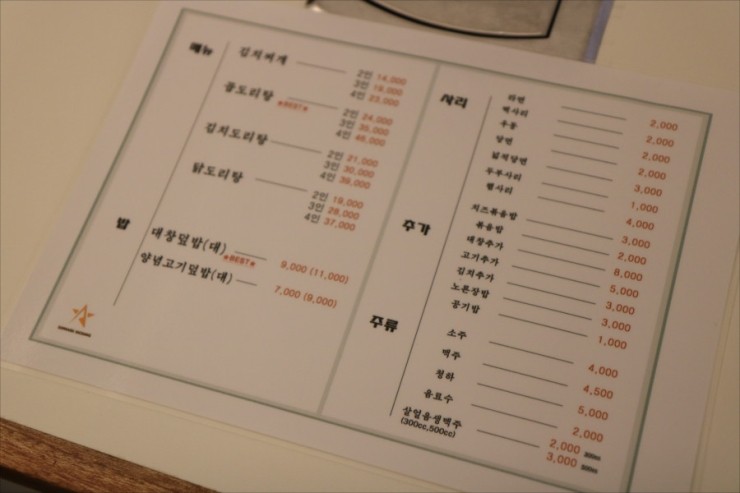 메뉴
김치찌개
2인 14,000
3인 18,000
4인 23,000
곱도리탕
★BEST★
2인 24,000
3인 35,000
4인 46,000
김치도리탕
2인 21,000
3인 30,000
4인 39,000
닭도리탕
2인 19,000
3인 28,000
4인 37,000
밥
대창덮밥(대) 9,000 (11,000)
★BEST★
양념고기덮밥(대) 7,000 (9,000)
사리
라면 2,000
떡사리 2,000
우동 2,000
당면 2,000
넓적당면 3,000
두부사리 1,000
햄사리 4,000
추가
치즈볶음밥 3,000
볶음밥 2,000
대창추가 8,000
고기추가 5,000
김치추가 3,000
노른장밥 3,000
공기밥 1,000
주류
소주 4,000
맥주 4,500
청하 5,000
음료수 2,000
살얼음생맥주 2,000
(300cc,500cc) 3,000